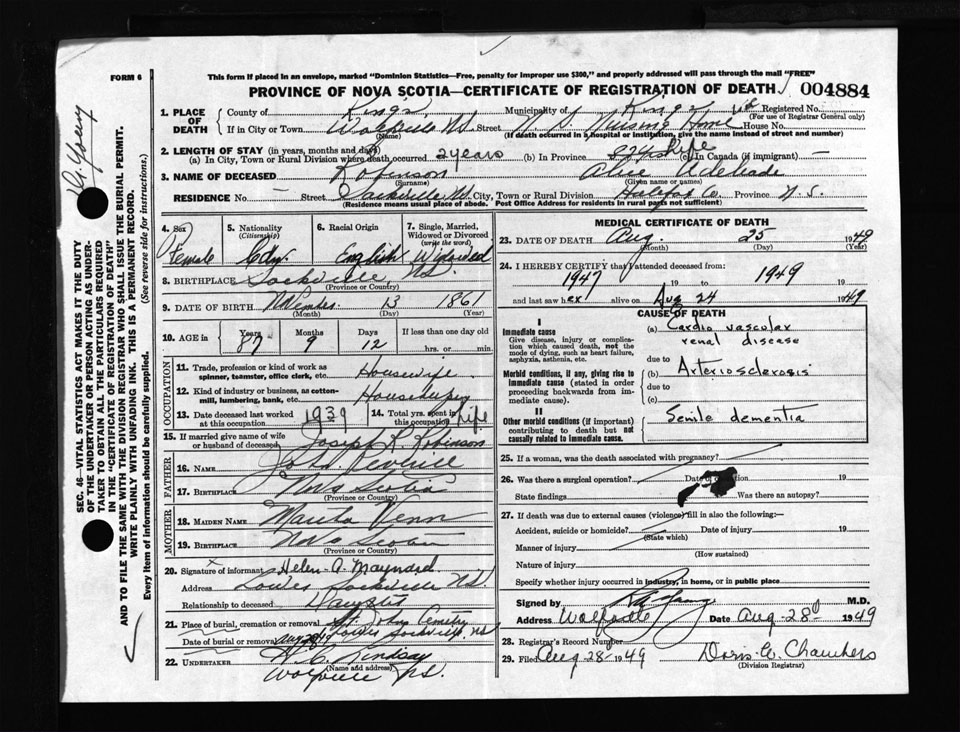 FORM 6
This form if placed in an envelope, marked "Dominion Statistics—Free, penalty for improper use $300," and properly addressed will pass through the mail "FREE"
PROVINCE OF NOVA SCOTIA—CERTIFICATE OF REGISTRATION OF DEATH 004884
1. PLACE OF DEATH
County of Kings Municipality of Kings Registered No.
(For use of Registrar General only)
If in City or Town Wolfville N.S. Street Nursing Home House No.
(Name) (If death occurred in a hospital or institution, give the name instead of street and number)
2. LENGTH OF STAY (in years, months and days)
(a) In City, Town or Rural Division where death occurred 2 years (b) In Province Life (c) In Canada (if immigrant) —
3. NAME OF DECEASED Robinson Alice Adelaide
(Surname) (Given name or names)
RESIDENCE No. Street Sackville N.S. City, Town or Rural Division Halifax Co. Province N.S.
(Residence means usual place of abode. Post Office Address for residents in rural parts not sufficient)
4. Sex Female
5. Nationality (Citizenship) Cdn.
6. Racial Origin English
7. Single, Married, Widowed or Divorced (write the word) Widowed
8. BIRTHPLACE Sackville N.S.
(Province or Country)
9. DATE OF BIRTH November 13 1861
(Month) (Day) (Year)
10. AGE in Years Months Days If less than one day old
87 9 12 hrs. or min.
OCCUPATION
11. Trade, profession or kind of work as spinner, teamster, office clerk, etc. Housewife
12. Kind of industry or business, as cotton-mill, lumbering, bank, etc. Housekeeping
13. Date deceased last worked at this occupation 1939
14. Total yrs. spent in this occupation Life
15. If married give name of wife or husband of deceased Joseph K. Robinson
FATHER
16. NAME John
17. BIRTHPLACE Nova Scotia
(Province or Country)
MOTHER
18. MAIDEN NAME Venn
19. BIRTHPLACE Nova Scotia
(Province or Country)
20. Signature of informant Helen A. Maynard
Address Lower Sackville N.S.
Relationship to deceased Daughter
21. Place of burial, cremation or removal St. Johns Cemetery
Date of burial or removal Lower Sackville, N.S.
22. UNDERTAKER Lindsay
(Name and address)
Wolfville N.S.
MEDICAL CERTIFICATE OF DEATH
23. DATE OF DEATH Aug. 25 1949
(Month) (Day) (Year)
24. I HEREBY CERTIFY that I attended deceased from:
1947 19 to 1949 19
and last saw her alive on Aug 24 1949
CAUSE OF DEATH
I
Immediate cause
Give disease, injury or complication which caused death, not the mode of dying, such as heart failure, asphyxia, asthenia, etc.
(a) Cardio vascular renal disease
due to
Morbid conditions, if any, giving rise to immediate cause (stated in order proceeding backwards from immediate cause).
(b) Arteriosclerosis
due to
(c)
II
Other morbid conditions (if important) contributing to death but not causally related to immediate cause.
Senile dementia
25. If a woman, was the death associated with pregnancy?
26. Was there a surgical operation? Date of operation 19
State findings Was there an autopsy?
27. If death was due to external causes (violence) fill in also the following:—
Accident, suicide or homicide? Date of injury 19
(State which)
Manner of injury
(How sustained)
Nature of injury
Specify whether injury occurred in industry, in home, or in public place
Signed by M.D.
Address Wolfville Date Aug. 28 1949
28. Registrar's Record Number
29. Filed Aug 28 1949 Doris A. Chambers
(Division Registrar)
SEC. 46—VITAL STATISTICS ACT MAKES IT THE DUTY OF THE UNDERTAKER OR PERSON ACTING AS UNDERTAKER TO OBTAIN ALL THE PARTICULARS REQUIRED IN THE "CERTIFICATE OF REGISTRATION OF DEATH" AND TO FILE THE SAME WITH THE DIVISION REGISTRAR WHO SHALL ISSUE THE BURIAL PERMIT.
WRITE PLAINLY WITH UNFADING INK. THIS IS A PERMANENT RECORD.
Every item of information should be carefully supplied. (See reverse side for instructions.)